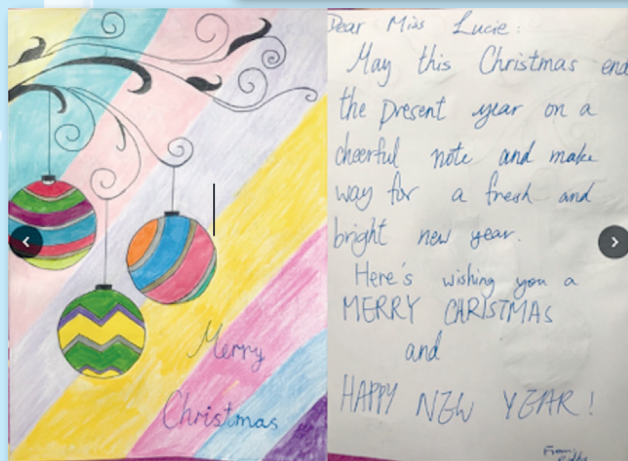 Merry
Christmas
Dear Miss Lucie:
May this Christmas end
the present year on a
cheerful note and make
way for a fresh and
bright new year.
Here's wishing you a
MERRY CHRISTMAS
and
HAPPY NEW YEAR!
From: